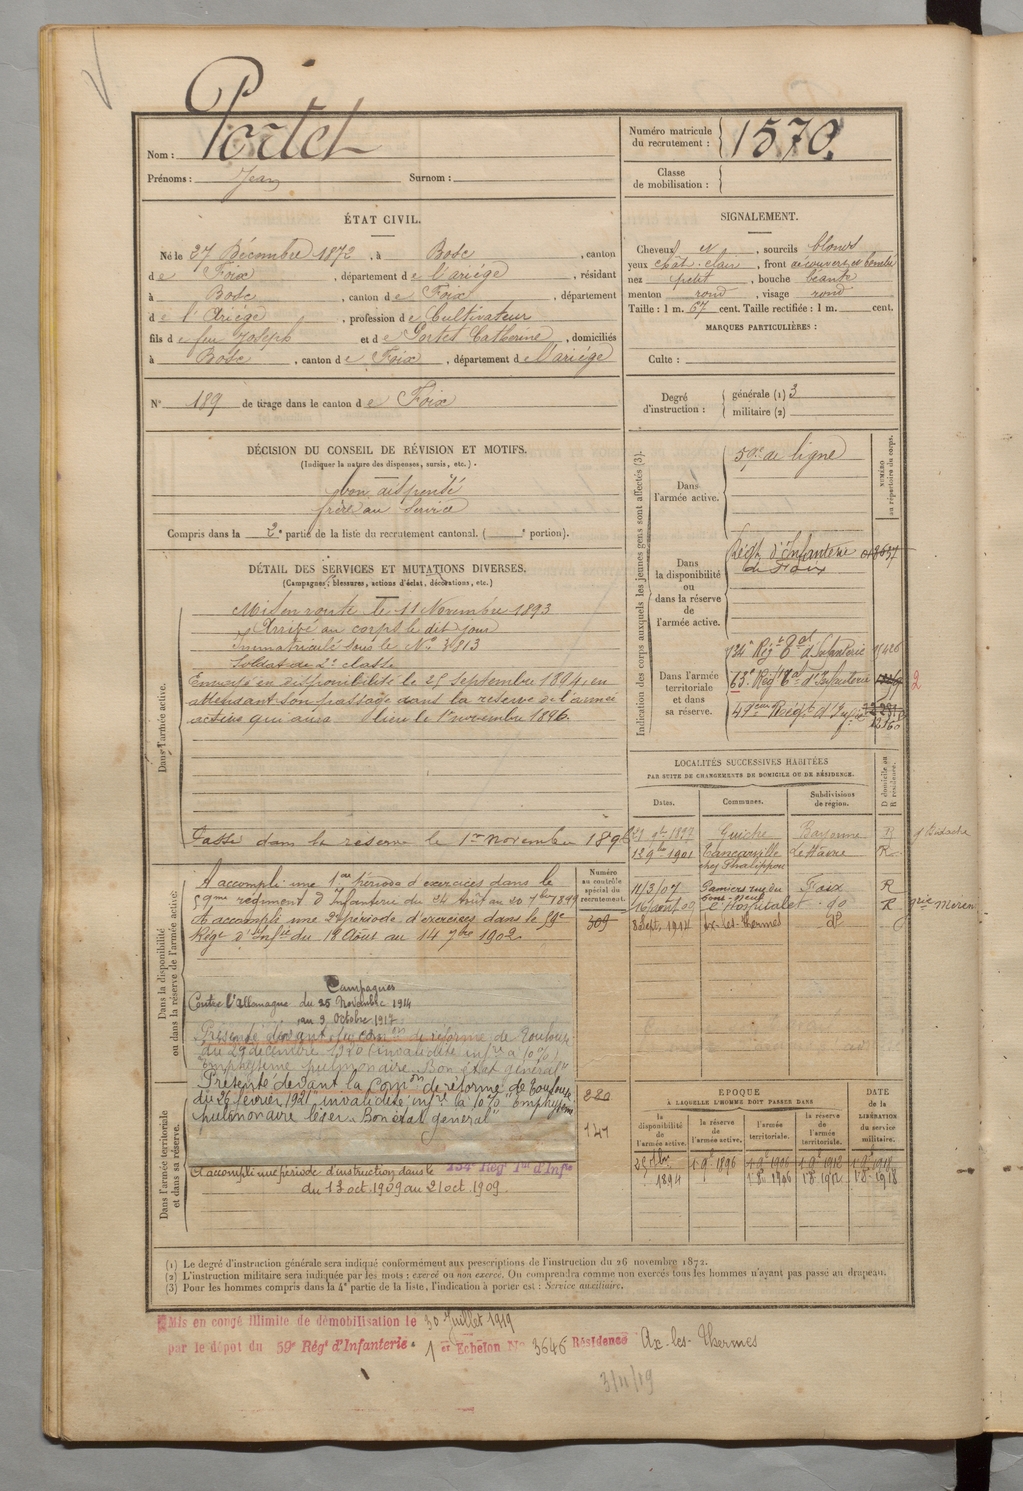 Nom : Portet
Prénoms : Jean Surnom :
Numéro matricule du recrutement : 1570.
Classe de mobilisation :
ÉTAT CIVIL.
Né le 27 Décembre 1872, à Bosc, canton
de Foix, département de l'ariége, résidant
à Bosc, canton de Foix, département
de l'Ariége, profession de Cultivateur
fils de feu Joseph et de Portet Catherine, domiciliés
à Bosc, canton de Foix, département de l'ariége
N° 189 de tirage dans le canton de Foix
SIGNALEMENT.
Cheveux et, sourcils blonds
yeux chât. clair, front découvert et bombé
nez petit, bouche béante
menton rond, visage rond
Taille : 1 m. 67 cent. Taille rectifiée : 1 m. cent.
MARQUES PARTICULIÈRES :
Culte :
Degré d'instruction : générale (1) 3
militaire (2)
DÉCISION DU CONSEIL DE RÉVISION ET MOTIFS.
(Indiquer la nature des dispenses, sursis, etc.).
bon dispensé
frère au service
Compris dans la 2e partie de la liste du recrutement cantonal. ( e portion).
DÉTAIL DES SERVICES ET MUTATIONS DIVERSES.
(Campagnes, blessures, actions d'éclat, décorations, etc.)
Dans l'armée active.
Mis en route le 11 Novembre 1893
Arrivé au corps le dit jour
Immatriculé sous le N° 3813
Soldat de 2e classe
Envoyé en disponibilité le 25 septembre 1894, en
attendant son passage dans la réserve de l'armée
active qui aura lieu le 1er novembre 1896.
Passé dans la réserve le 1er novembre 1896
Dans la disponibilité ou dans la réserve de l'armée active.
A accompli une 1ère période d'exercices dans le
59me régiment d'Infanterie du 24 Août au 20 7bre 1899
a accompli une 2e période d'exercices dans le 59e
Régt d'Infie du 18 Août au 14 7bre 1902
Campagnes
Contre l'Allemagne du 25 Novembre 1914
au 9 Octobre 1917
Présenté devant la Comon de réforme de Toulouse
du 29 décembre 1920 (invalidité infre à 10%)
"emphysème pulmonaire Bon état général"
Présenté devant la Comon de réforme de Toulouse
du 26 février 1921 "invalidité infre à 10% "emphysème
pulmonaire léger - Bon état général"
Dans l'armée territoriale et dans sa réserve.
A accompli une période d'instruction dans le 134e Régt Ial d'Infie
du 13 oct. 1909 au 21 oct. 1909.
Numéro au contrôle spécial du recrutement.
309
220
141
Indication des corps auxquels les jeunes gens sont affectés (3).
NUMÉRO au répertoire du corps.
Dans l'armée active.
59e de ligne
Dans la disponibilité ou dans la réserve de l'armée active.
Régt d'Infanterie
de Foix
Dans l'armée territoriale et dans sa réserve.
134e Régt Tal d'Infanterie
63e Régt Tal d'Infanterie 2
49ème Régt d'Infie
LOCALITÉS SUCCESSIVES HABITÉES
PAR SUITE DE CHANGEMENTS DE DOMICILE OU DE RÉSIDENCE.
Dates. Communes. Subdivisions de région. D domicile ou R résidence.
Guiche Bayonne R
12 9bre 1901 Tancarville Le Hâvre R
chez Philippon
11/3/07 Pamiers rue du Foix R
Pont-neuf
16 août 09 L'Hospitalet do R
8 Sept. 1914 Ax-les-Thermes do
EPOQUE
À LAQUELLE L'HOMME DOIT PASSER DANS
la disponibilité de l'armée active. la réserve de l'armée active. l'armée territoriale. la réserve de l'armée territoriale.
DATE de la LIBÉRATION du service militaire.
1894
(1) Le degré d'instruction générale sera indiqué conformément aux prescriptions de l'instruction du 26 novembre 1872.
(2) L'instruction militaire sera indiquée par les mots : exercé ou non exercé. On comprendra comme non exercés tous les hommes n'ayant pas passé au drapeau.
(3) Pour les hommes compris dans la 4e partie de la liste, l'indication à porter est : Service auxiliaire.
Mis en congé illimité de démobilisation le 30 Juillet 1919
par le dépôt du 59e Régt d'Infanterie. 1er Echelon No 3646 Résidence Ax-les-Thermes
3/11/19